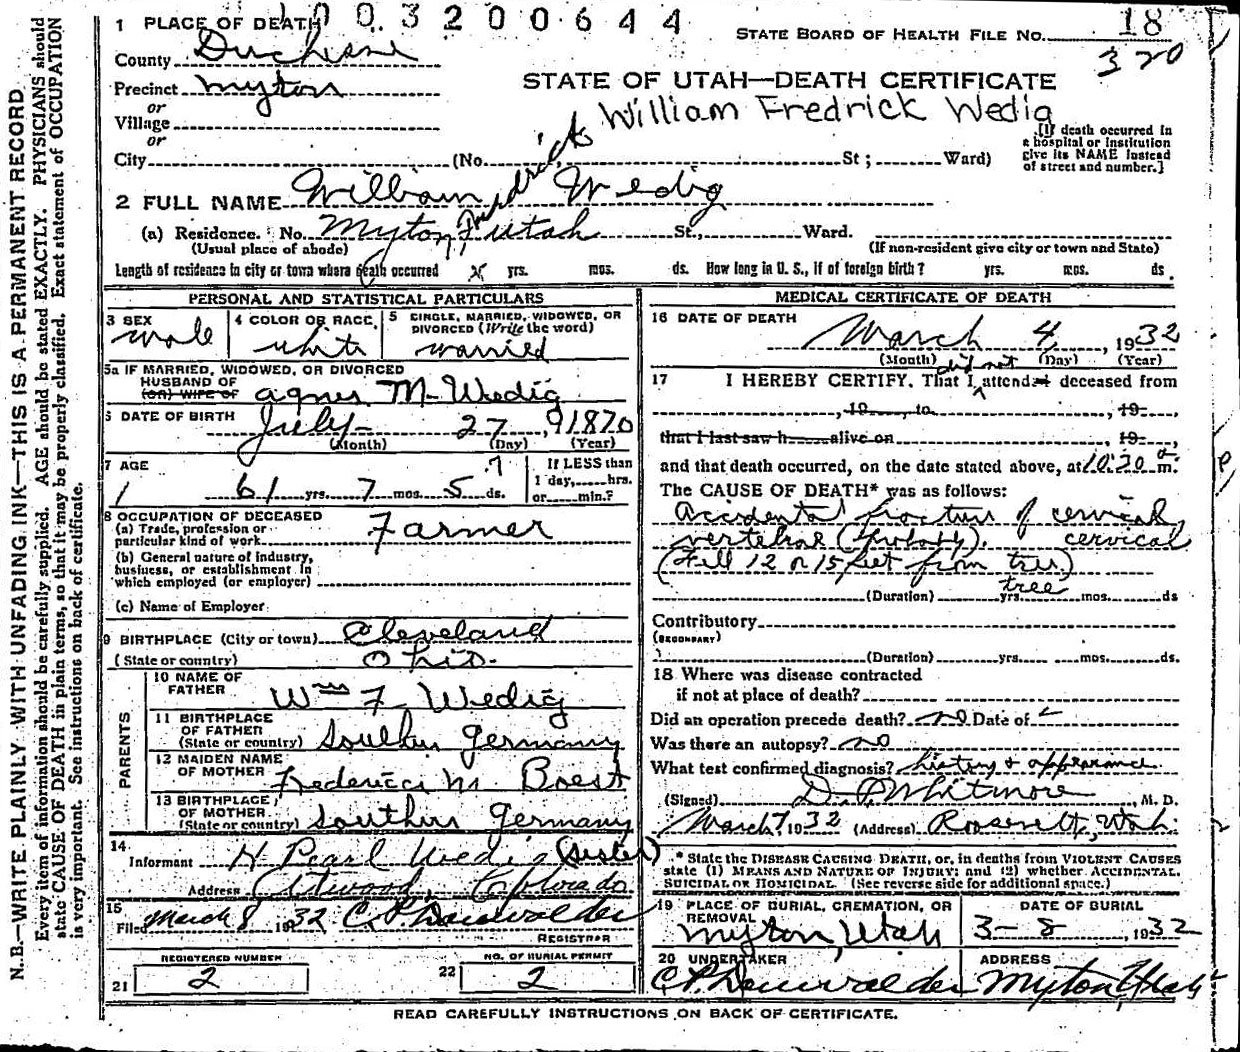 1 0 0 3 2 0 0 6 4 4
1 PLACE OF DEATH
STATE BOARD OF HEALTH FILE NO. 18
320
County Duchesne
Precinct Myton
or
Village
or
City (No. St; Ward)
STATE OF UTAH—DEATH CERTIFICATE
William Fredrick Wedig
[If death occurred in
a hospital or institution
give its NAME instead
of street and number.]
2 FULL NAME William Fredrick Wedig
(a) Residence. No. Myton, Utah St., Ward.
(Usual place of abode) (If non-resident give city or town and State)
Length of residence in city or town where death occurred yrs. mos. ds. How long in U. S., if of foreign birth? yrs. mos. ds.
PERSONAL AND STATISTICAL PARTICULARS
3 SEX
male
4 COLOR OR RACE
white
5 SINGLE, MARRIED, WIDOWED, OR
DIVORCED (Write the word)
married
5a IF MARRIED, WIDOWED, OR DIVORCED
HUSBAND OF
(or) WIFE OF Agnes M. Wedig
6 DATE OF BIRTH July 27, 1870
(Month) (Day) (Year)
7 AGE
61 yrs. 7 mos. 5 ds.
7
If LESS than
1 day, hrs.
or min.?
8 OCCUPATION OF DECEASED
(a) Trade, profession or
particular kind of work Farmer
(b) General nature of industry,
business, or establishment in
which employed (or employer)
(c) Name of Employer
9 BIRTHPLACE (City or town) Cleveland
(State or country) Ohio.
PARENTS
10 NAME OF
FATHER Wm F Wedig
11 BIRTHPLACE
OF FATHER
(State or country) Southern Germany
12 MAIDEN NAME
OF MOTHER Frederica M Boest
13 BIRTHPLACE
OF MOTHER
(State or country) Southern Germany
14
Informant H Pearl Wedig (sister)
Address Atwood, Colorado
15
Filed March 8 1932 C. P.
REGISTRAR
REGISTERED NUMBER
21 2
NO. OF BURIAL PERMIT
22 2
MEDICAL CERTIFICATE OF DEATH
16 DATE OF DEATH
March 4, 1932
(Month) (Day) (Year)
did not
17 I HEREBY CERTIFY, That I attended deceased from
, 19 , to , 19 ,
that I last saw h alive on , 19 ,
and that death occurred, on the date stated above, at 10:20 a m.
The CAUSE OF DEATH* was as follows:
Accidental fracture of cervical
vertebrae (probably). cervical
(Fell 12 or 15 feet from tree)
tree
(Duration) yrs. mos. ds
Contributory
(SECONDARY)
(Duration) yrs. mos. ds.
18 Where was disease contracted
if not at place of death?
Did an operation precede death? no Date of
Was there an autopsy? no
What test confirmed diagnosis? history & appearance
(Signed) D. P. Whitmore, M. D.
March 7 1932 (Address) Roosevelt, Utah
* State the DISEASE CAUSING DEATH, or, in deaths from VIOLENT CAUSES
state (1) MEANS AND NATURE OF INJURY; and (2) whether ACCIDENTAL,
SUICIDAL OR HOMICIDAL. (See reverse side for additional space.)
19 PLACE OF BURIAL, CREMATION, OR
REMOVAL
Myton, Utah
DATE OF BURIAL
3-8, 1932
20 UNDERTAKER
C. P.
ADDRESS
Myton Utah
READ CAREFULLY INSTRUCTIONS ON BACK OF CERTIFICATE.
N. B.—WRITE PLAINLY WITH UNFADING INK—THIS IS A PERMANENT RECORD
Every item of information should be carefully supplied. AGE should be stated EXACTLY. PHYSICIANS should
state CAUSE OF DEATH in plain terms, so that it may be properly classified. Exact statement of OCCUPATION
is very important. See instructions on back of certificate.